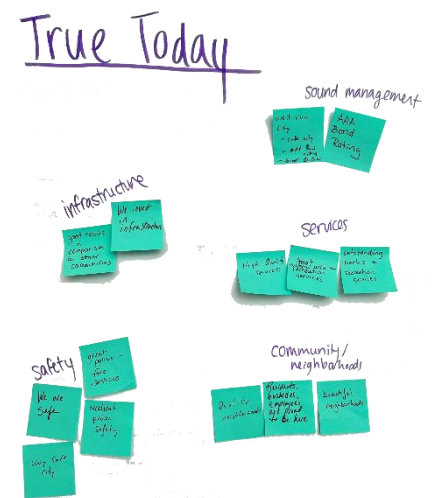 True Today
sound management
well run
city
AAA
Bond
Rating
infrastructure
We invest
in
infrastructure
good roads
in
comparison
to other
communities
services
High Quality
services
great
recreation
services
outstanding
parks +
recreation
services
safety
great
police +
fire
services
We are
safe
excellent
public
safety
Very safe
city
community/
neighborhoods
neighborhoods
Residents,
businesses,
employees
are proud
to be here
beautiful
neighborhoods